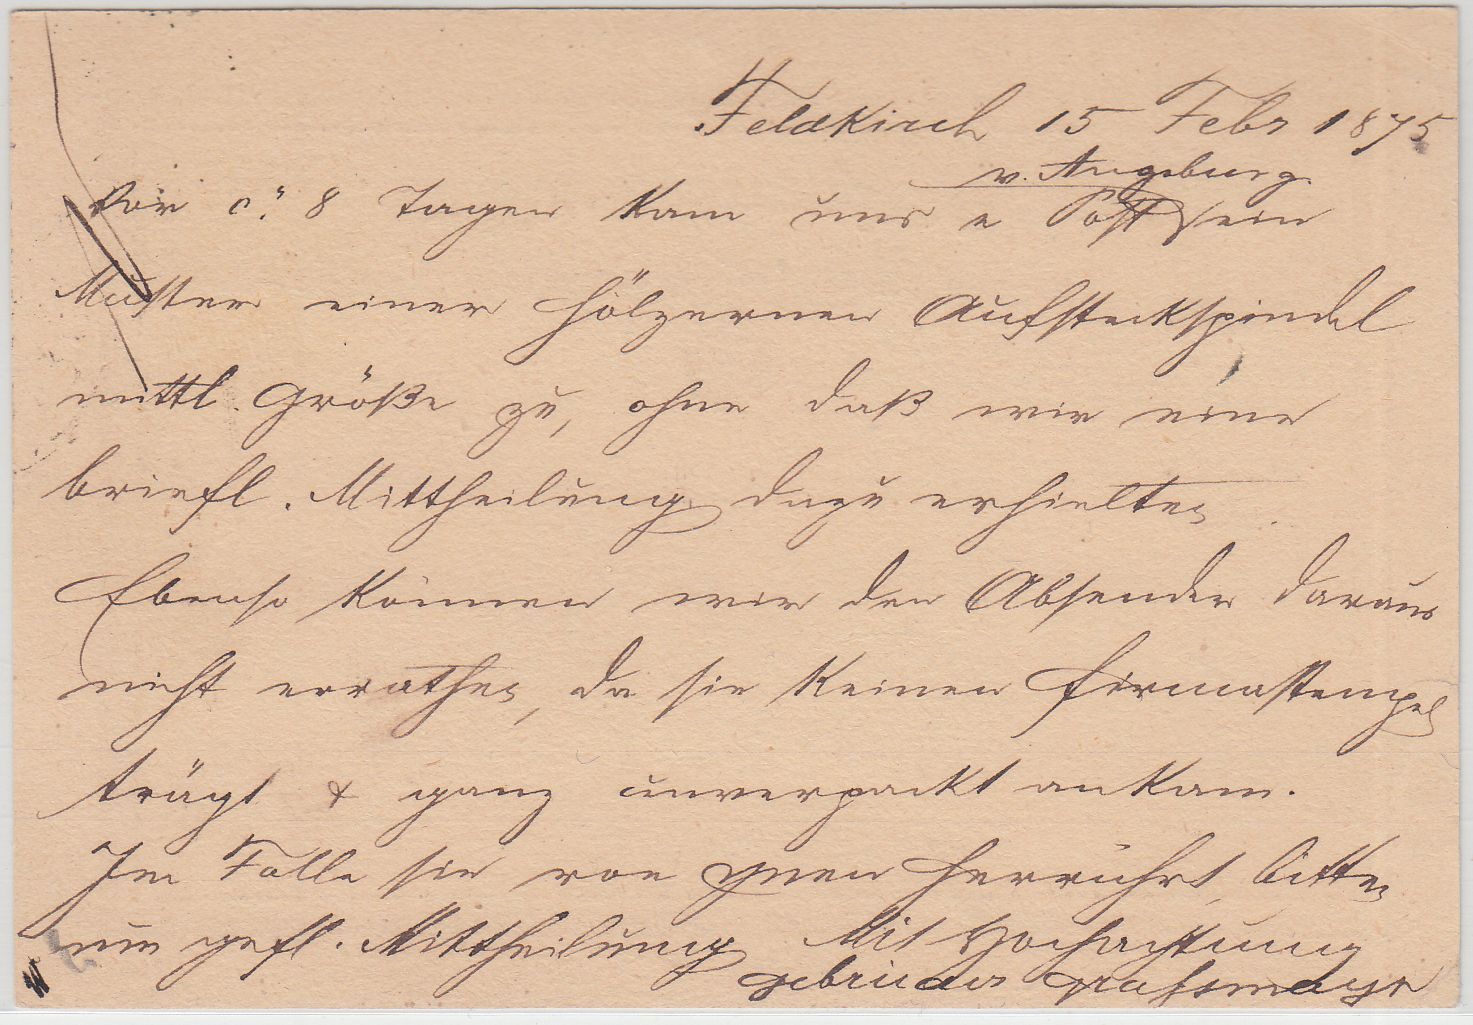 Feldkirch 15 Febr 1875
v. Augsburg
Vor ca. 8 Tagen kam uns p Post ein
Muster einer hölzernen Aufsteckspindel
mittl. Größe zu, ohne daß wir eine
briefl. Mittheilung dazu erhielten
Ebenso können wir den Absender daraus
nicht errathen, da sie keinen Firmastempel
trägt & ganz unverpackt ankam.
Im Falle sie von Ihnen herrührt, bitten
um gefl. Mittheilung Mit Hochachtung
Gebrüder Graßmayr